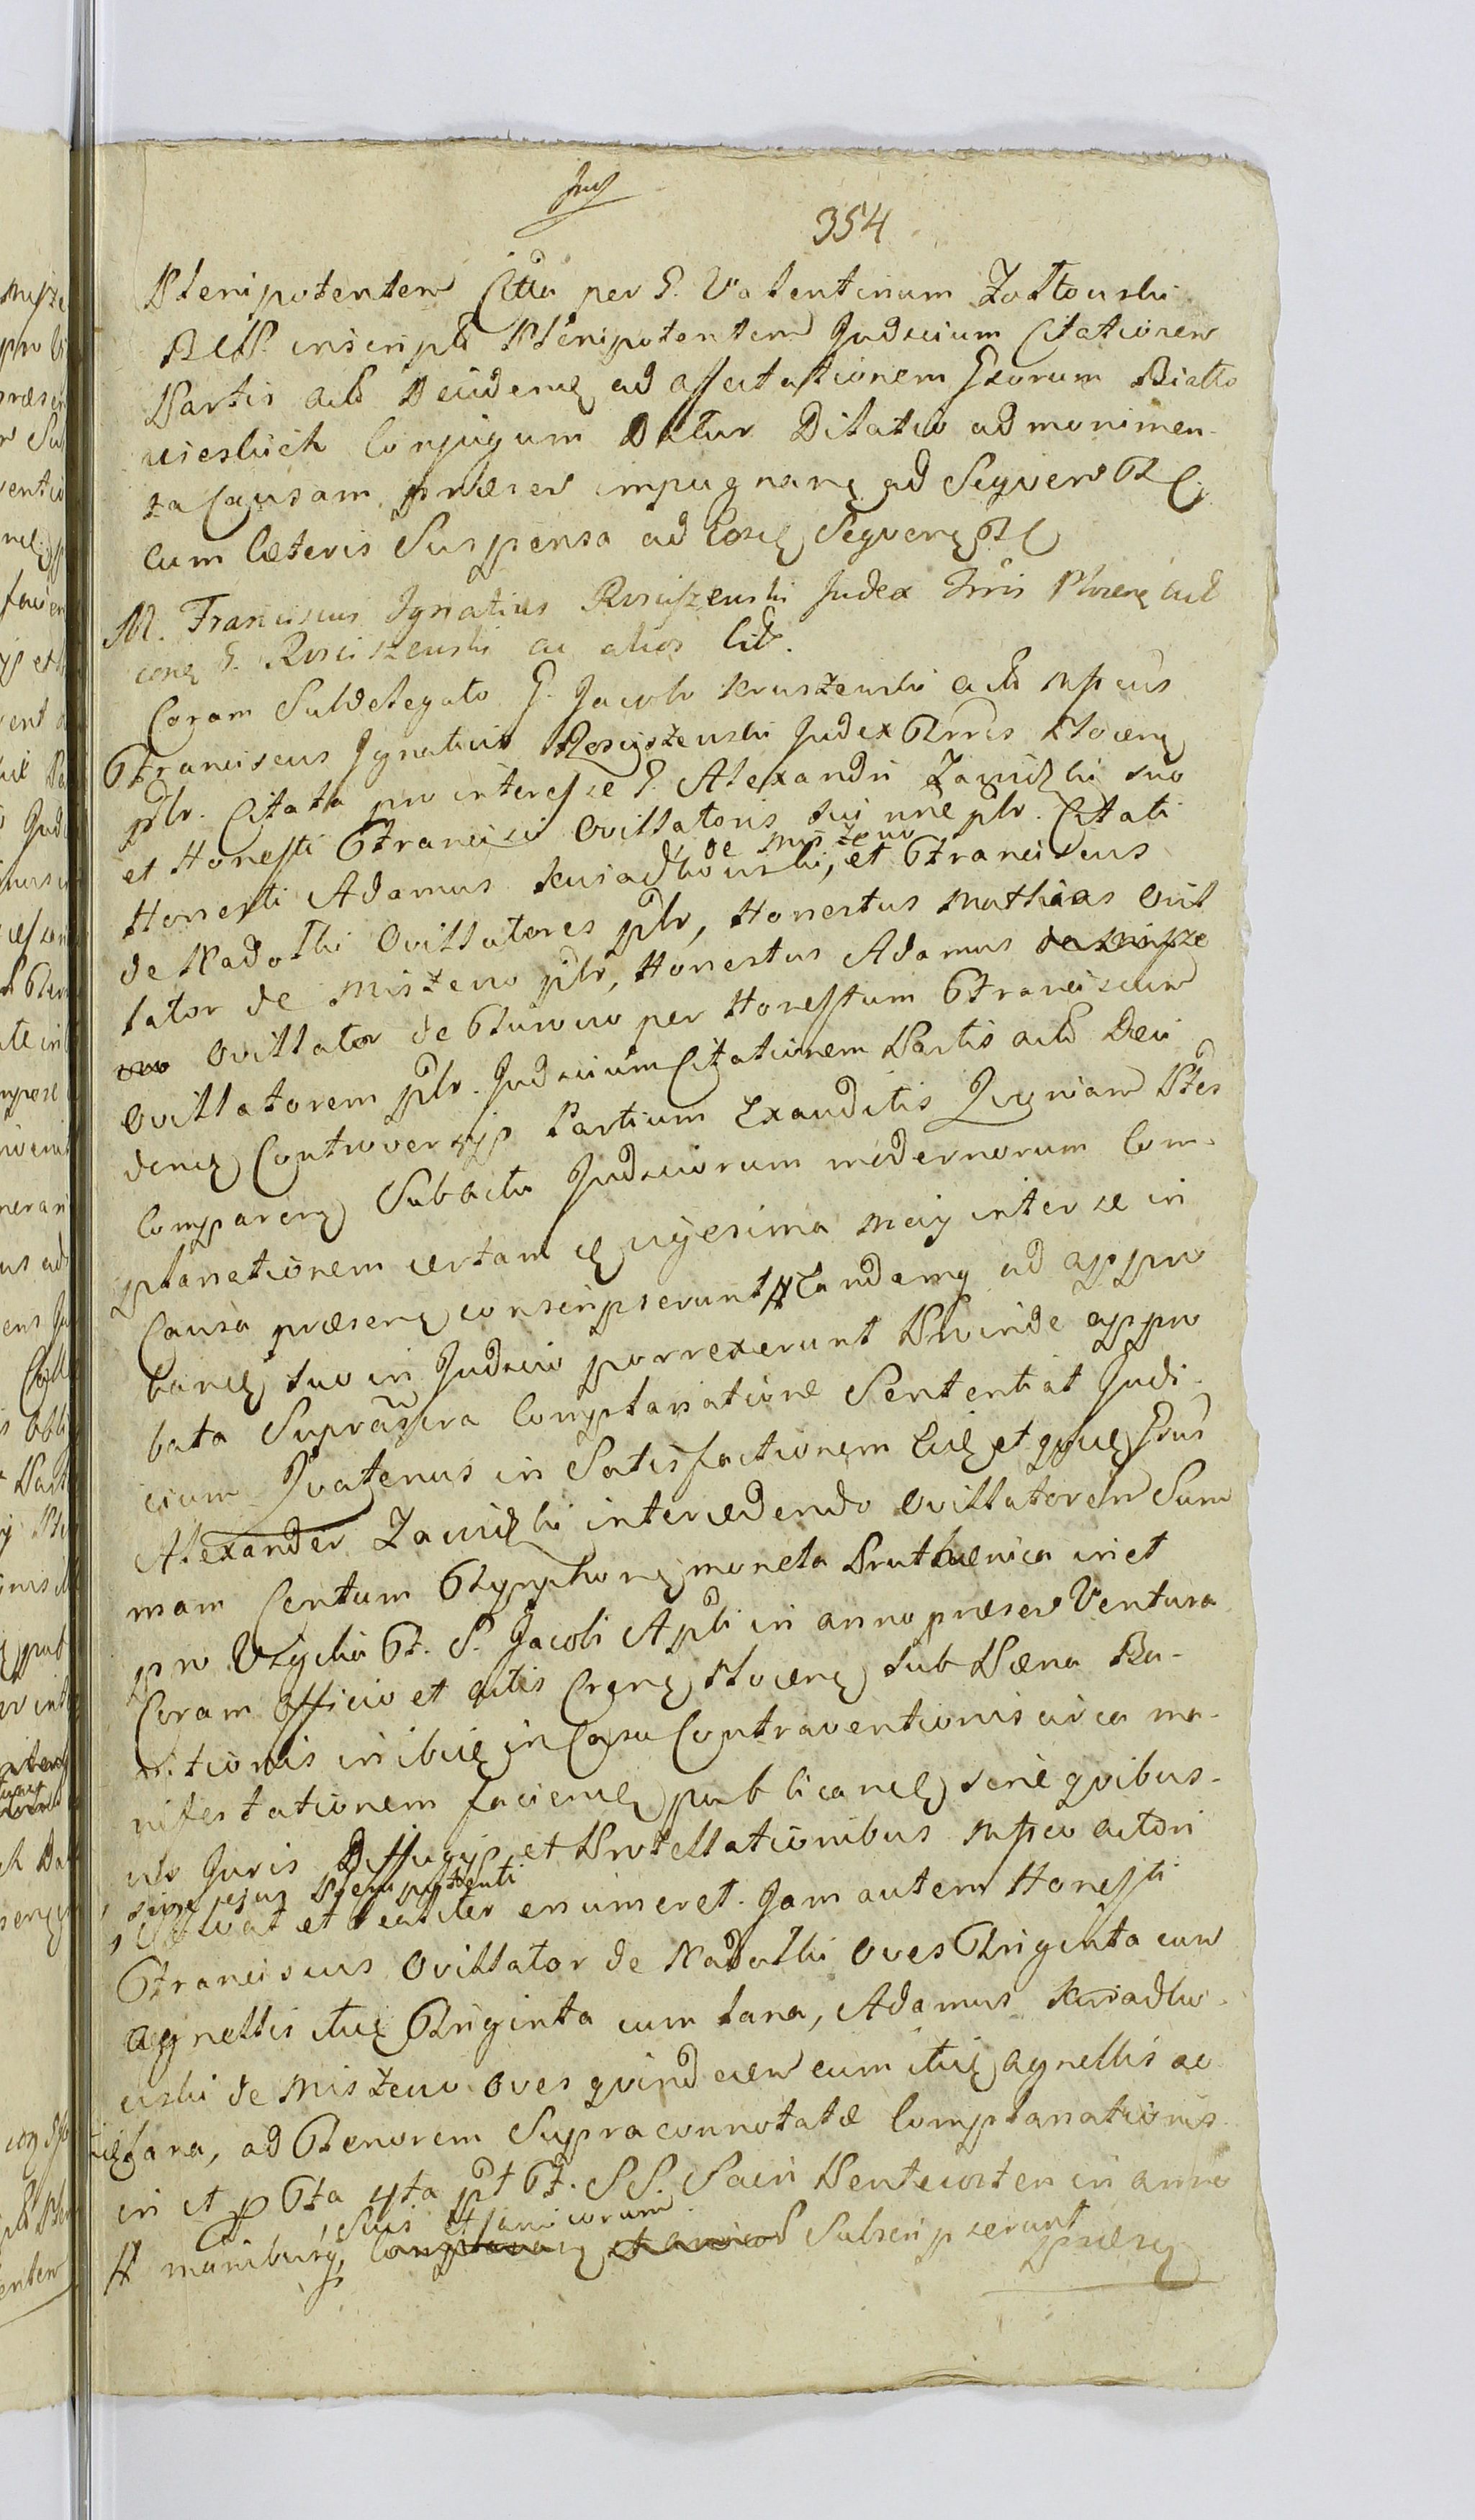 354
Plenipotentem Citta per G. Valentinum Zołtowski
inscripti Plenipotentem Judicium Citationem
Partis act Deciden ad affectationem Gsorum Biało
wieskich Conjugum Datur Dilatio ad monimen-
ta Causam præsen impugnan ad Seqven
Cum Cæteris Suspensa ad Eosd Seqven
M. Franciscus Ignatius Rosciszewski Judex Trris Plocen act
con G. Rosciszewski ac alios Cid.
Coram Subdelegato G. Jacobo Kruszewski act Mpcus
Franciscus Ignatius Rosciszewski Judex Trris Plocen
plr. Citata pro interesse G. Alexandri Zawidzki suo
et Honesti Francisci Ovillatoris sui nne plr. Citati
Honesti Adamus Kwiadkowski, de Miszewo et Franciscus
de Nadolki Ovillatores plr, Honestus Mathias Ovil
lator de Miszewo plr, Honestus Adamus de Misze
wo Ovillator de per Honestum Franciscum
Ovillatorem plr. Judicium Citationem Partis act Deci
den Controversijs Partium Exauditis Qvoniam Ptes
Comparen Sub actu Judiciorum modernorum Com-
planationem certam vigesima Maij inter se in
Causa præsen conscripserunt # tandemq ad appro
band suo in Judicio porrexerunt Proinde appro
bata Suprascra Complanatione Sententiat Judi-
cium Qvatenus in Satisfactionem Ejusd et Gsus
Alexander Zawidzki intercedendo Ovillatorem Sum
mam Centum Tynphon moneta Pruthenica in et
pro Vigilia F. S. Jacobi Apli in anno præsen Ventura
Coram Officio et Actis Cren Plocen sub Pæna Ba-
nitionis inibid in Casu Contraventionis circa ma-
nifestationem faciend publicand sine qvibus-
vis Juris Diffugijs et Protellationibus Mpco actori
sive ejus Plenipotenti
solvat et realiter enumeret. Jam autem Honesti
Franciscus Ovillator de Nadolki Oves Triginta cum
agnellis itid Triginta cum lana, Adamus Kwiadko-
wski de Miszewo Oves qvindecem cum itid agnellis ac
itid lana, ad Tenorem Supraconnotatæ Complanationis
in et p Fta 4ta pt F. SS. Sacri Pentecosten in anno
præsen
# manibusq, suis et amicorum Subscripserunt